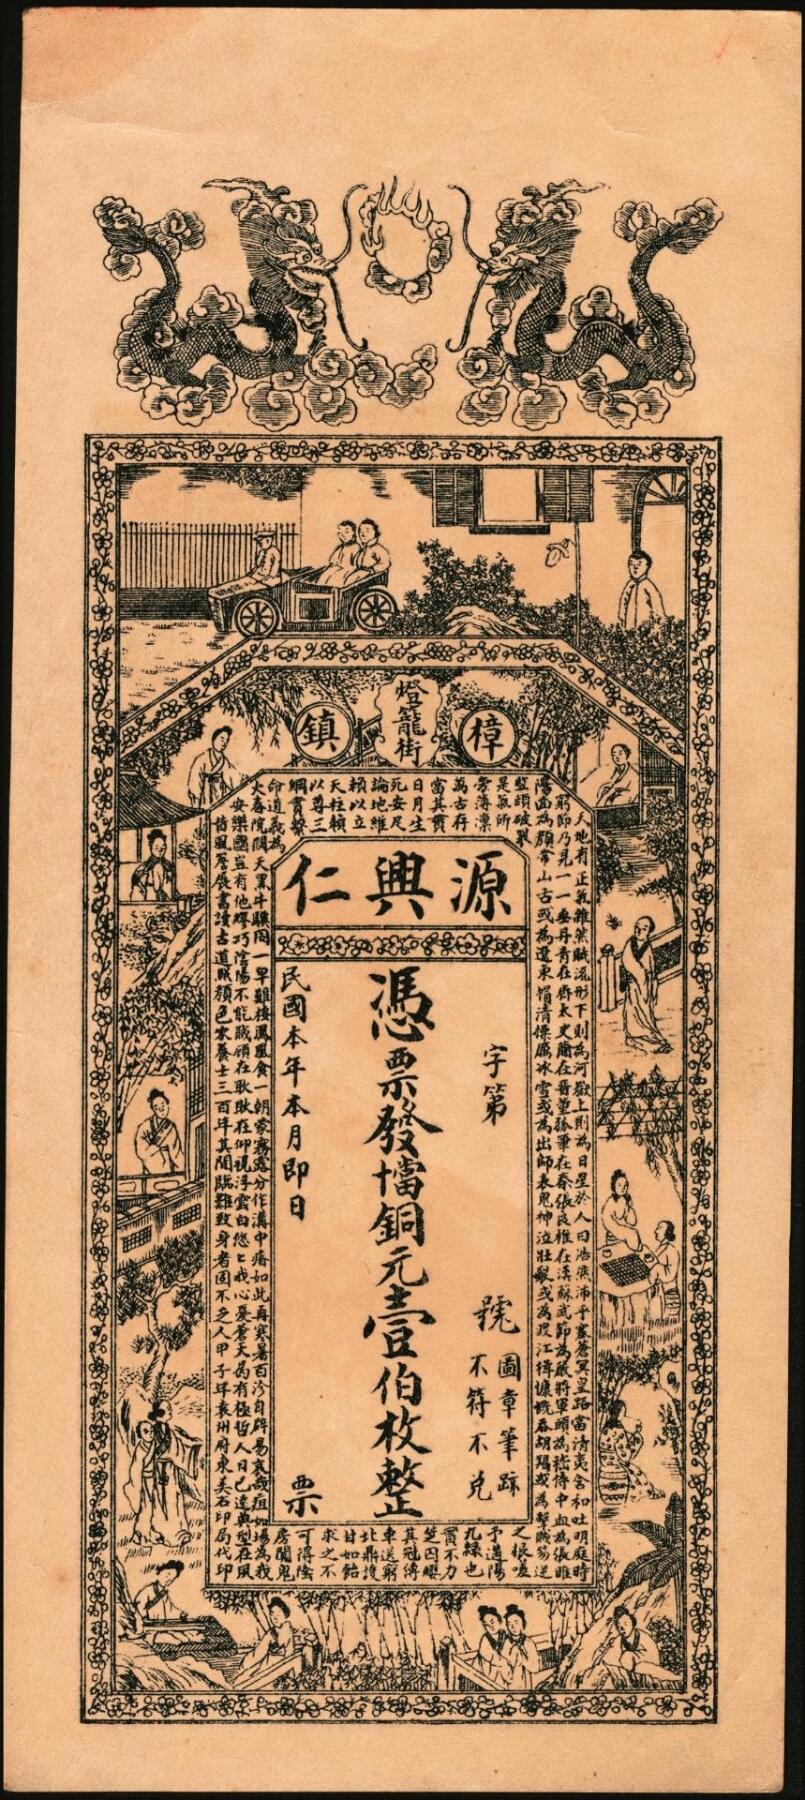 樟鎮
燈籠街
源興仁
字第
號
圖章筆跡
不符不兌
憑票發當銅元壹伯枚整
民國本年本月即日
票
天地有正氣雜然賦流形下則為河嶽上則為日星於人曰浩然沛乎塞蒼冥皇路當清夷含和吐明庭時
窮節乃見一一垂丹青在齊太史簡在晉董狐筆在秦張良椎在漢蘇武節為嚴將軍頭為嵇侍中血為張睢
陽齒為顏常山舌或為遼東帽清操厲冰雪或為出師表鬼神泣壯烈或為渡江楫慷慨吞胡羯或為擊賊笏逆
豎頭破裂
是氣所
旁薄凜
萬古存
當其貫
日月生
死安足
論地維
賴以立
天柱賴
以尊三
綱實繫
命道義為
之根嗟
予遘陽
九隸也
實不力
楚囚纓
其冠傳
車送窮
北鼎鑊
甘如飴
求之不
可得陰
房闃鬼
火春院閟天黑牛驥同一早雞棲鳳凰食一朝蒙霧露分作溝中瘠如此再寒暑百沴自辟易哀哉沮如場為我
安樂國豈有他繆巧陰陽不能賊顧在耿耿在仰視浮雲白悠々我心憂蒼天曷有極哲人日已遠典型在夙
昔風簷展書讀古道照顏色宋養士三百年其間臨難致身者固不乏人甲子年袁州府東美石印局代印